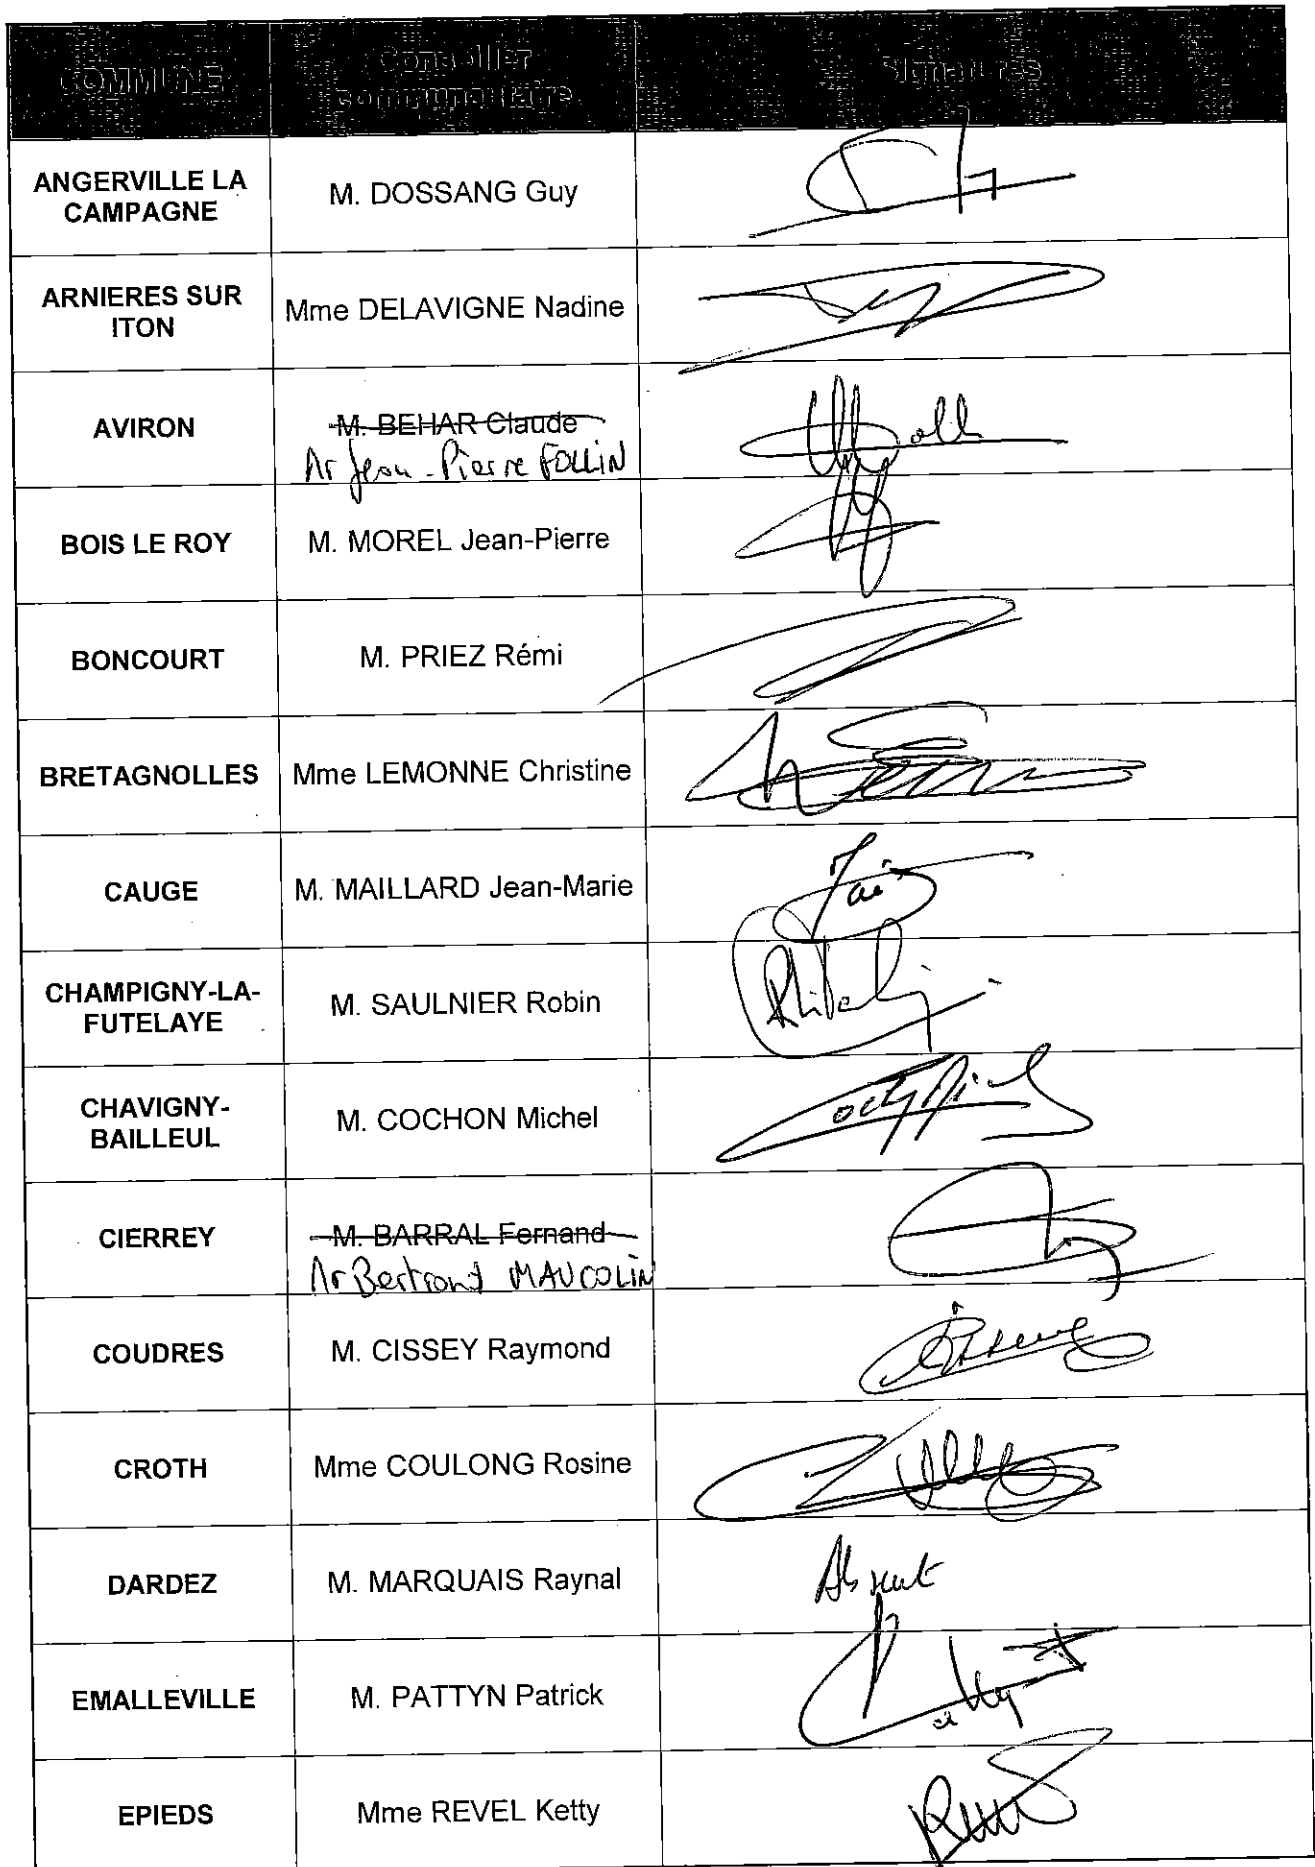 COMMUNE
Conseiller
communautaire
Signatures
ANGERVILLE LA
CAMPAGNE
M. DOSSANG Guy
ARNIERES SUR
ITON
Mme DELAVIGNE Nadine
AVIRON
M. BEHAR Claude
Mr Jean-Pierre FOLLIN
BOIS LE ROY
M. MOREL Jean-Pierre
BONCOURT
M. PRIEZ Rémi
BRETAGNOLLES
Mme LEMONNE Christine
CAUGE
M. MAILLARD Jean-Marie
CHAMPIGNY-LA-
FUTELAYE
M. SAULNIER Robin
CHAVIGNY-
BAILLEUL
M. COCHON Michel
CIERREY
M. BARRAL Fernand
Mr Bertrand MAUCOLIN
COUDRES
M. CISSEY Raymond
CROTH
Mme COULONG Rosine
DARDEZ
M. MARQUAIS Raynal
Absent
EMALLEVILLE
M. PATTYN Patrick
EPIEDS
Mme REVEL Ketty